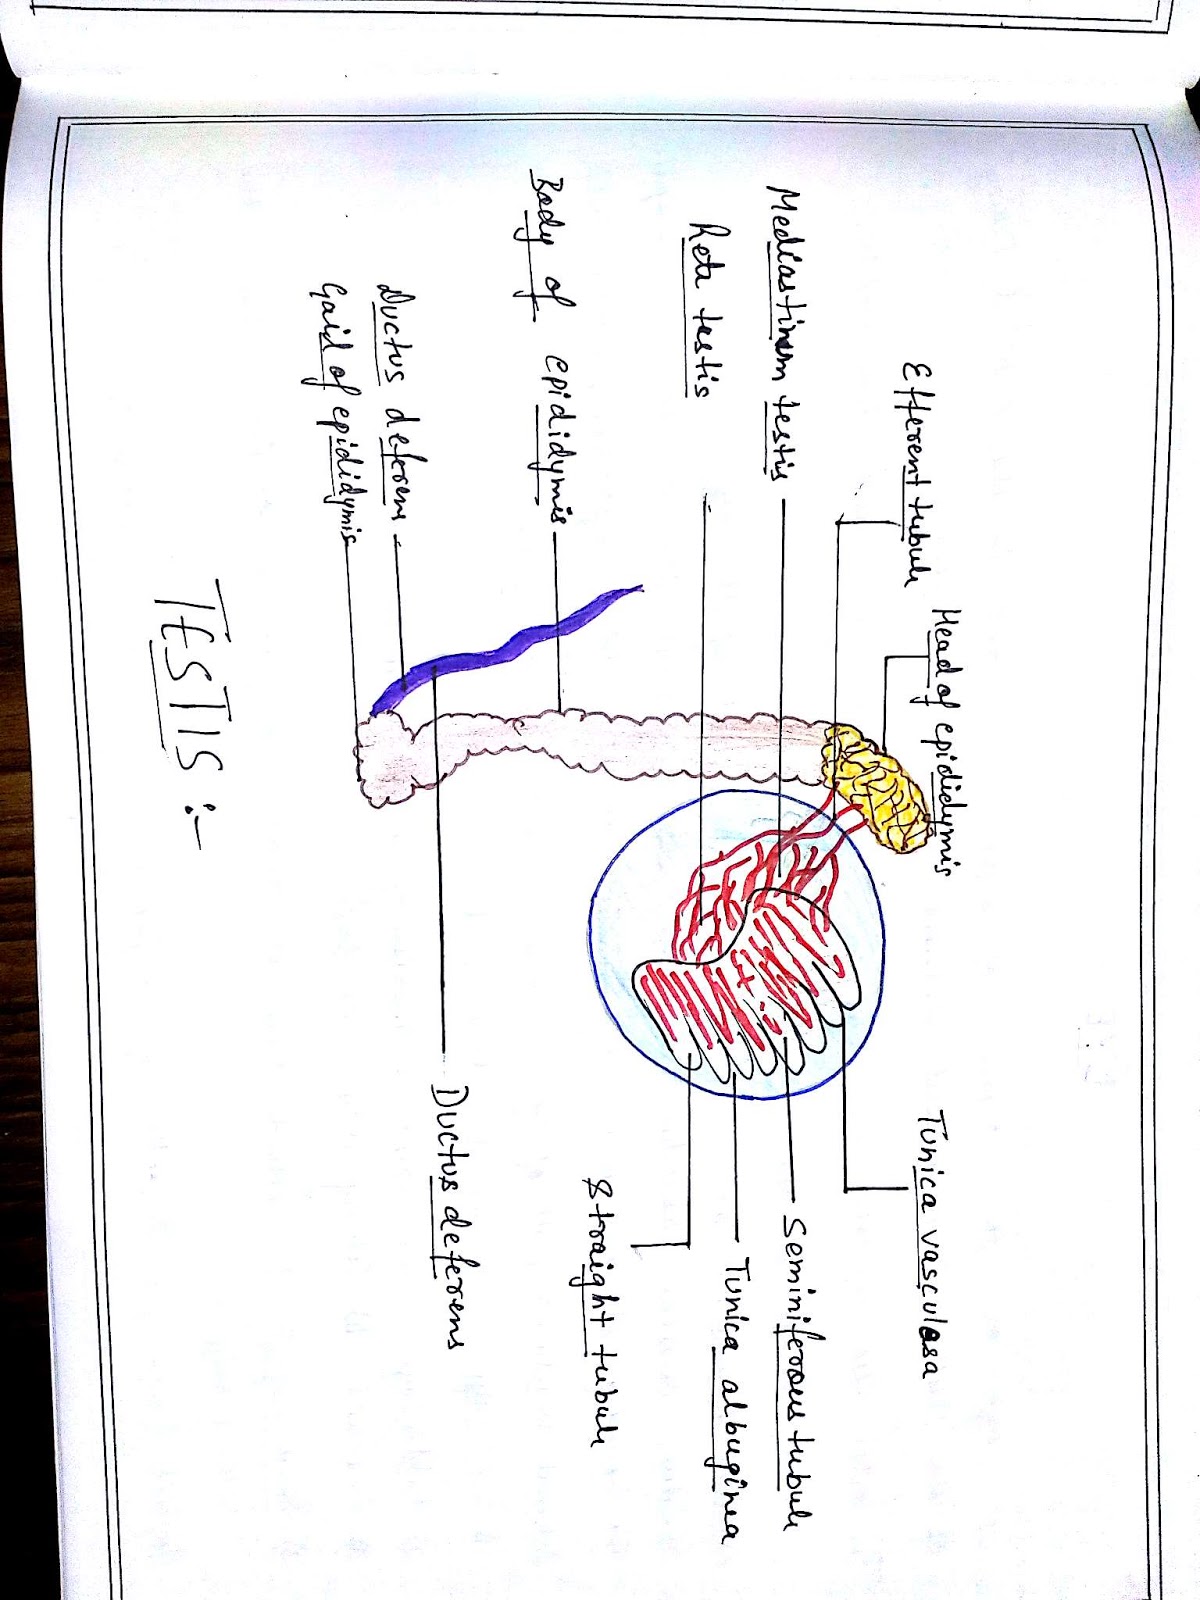 Efferent tubule
Head of epididymis
Mediastinum testis
Rete testis
Body of epididymis
Ductus deferens
Gaid of epididymis
Tunica vasculosa
Seminiferous tubule
Tunica albuginea
Straight tubule
Ductus deferens
TESTIS :-